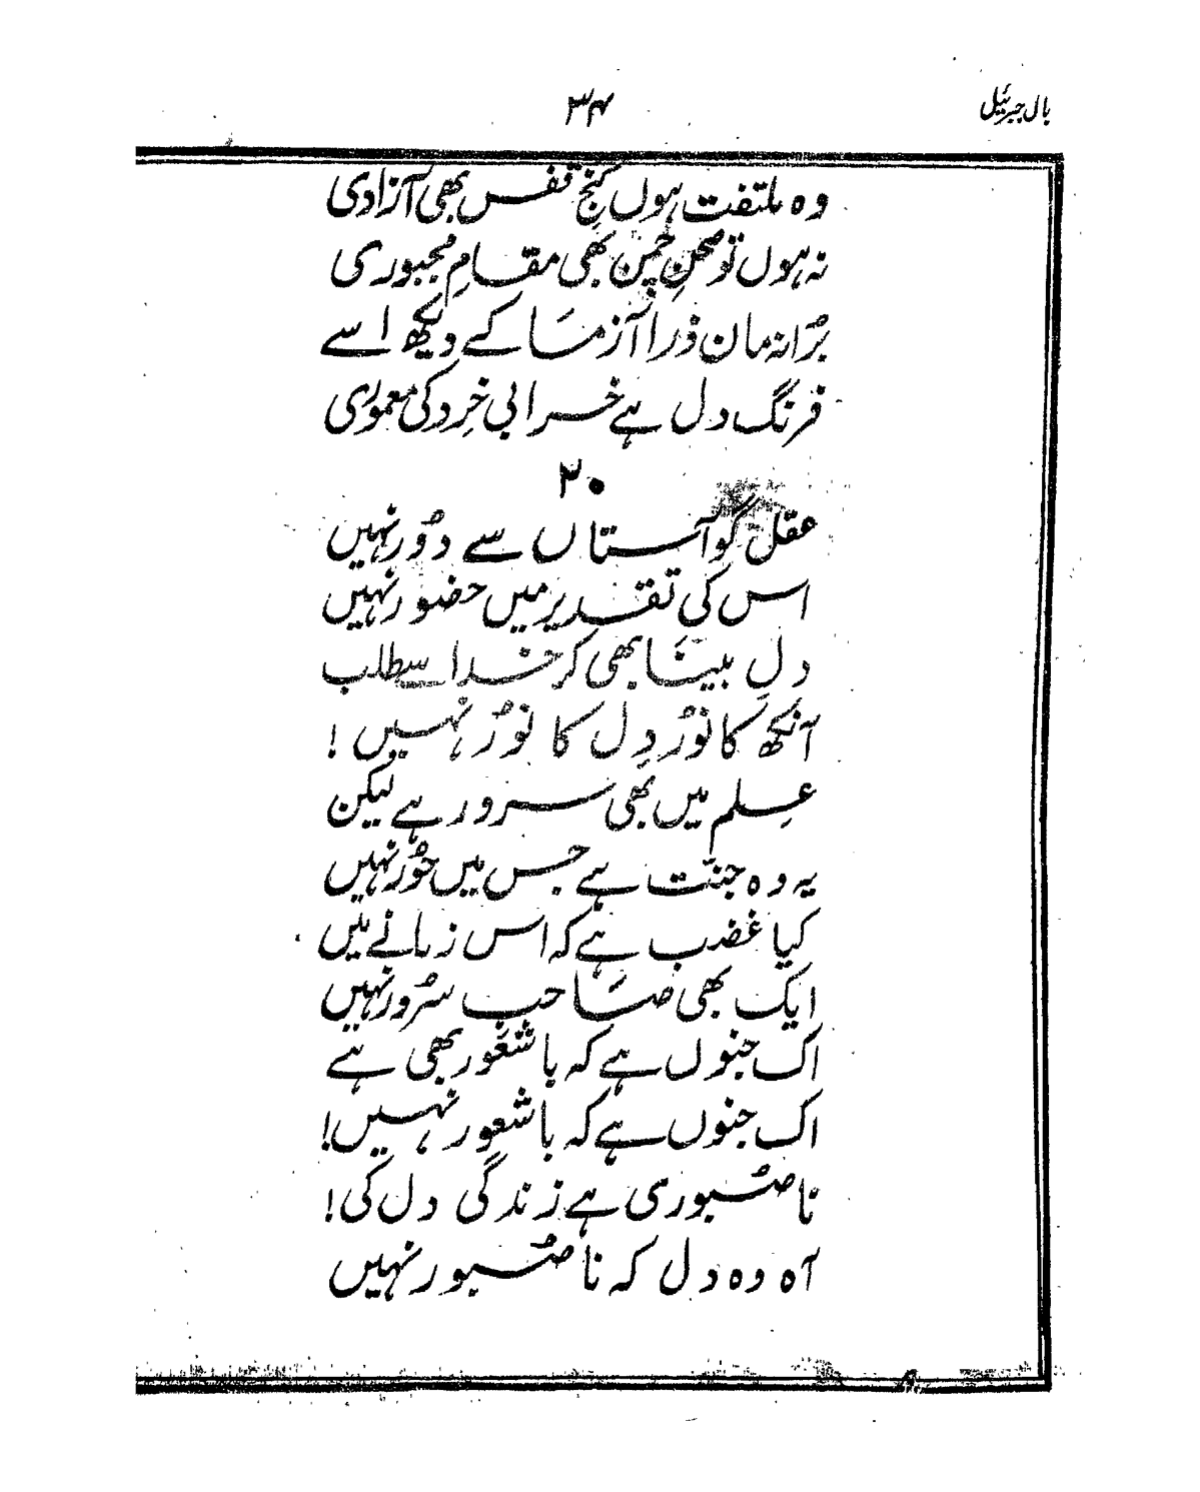 بال جبریل
۳۴
وہ ملتفت ہوں کنجِ قفس بھی آزادی
نہ ہوں تو صحنِ چمن بھی مقامِ مجبوری
بُرا نہ مان ذرا آزما کے دیکھ اسے
فرنگ دل ہے خرابی خِرد کی معموری
۲۰
عقل گو آستاں سے دُور نہیں
اس کی تقدیر میں حضور نہیں
دلِ بینا بھی کر خدا سے طلب
آنکھ کا نُور دِل کا نُور نہیں!
عِلم میں بھی سرور ہے لیکن
یہ وہ جنّت ہے جس میں حُور نہیں
کیا غضب ہے کہ اس زمانے میں
ایک بھی صاحبِ سُرور نہیں
اک جنوں ہے کہ باشعُور بھی ہے
اک جنوں ہے کہ باشعور نہیں!
ناصبوری ہے زندگی دل کی!
آہ وہ دل کہ ناصبور نہیں